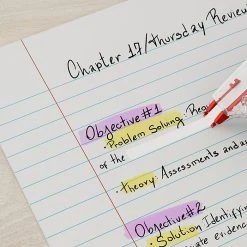 Chapter 17/Thursday Review
Objective#1
· Problem Solving: Requ
of the
· Theory: Assessments and a
Objective#2
· Solution Identifying
evidenc